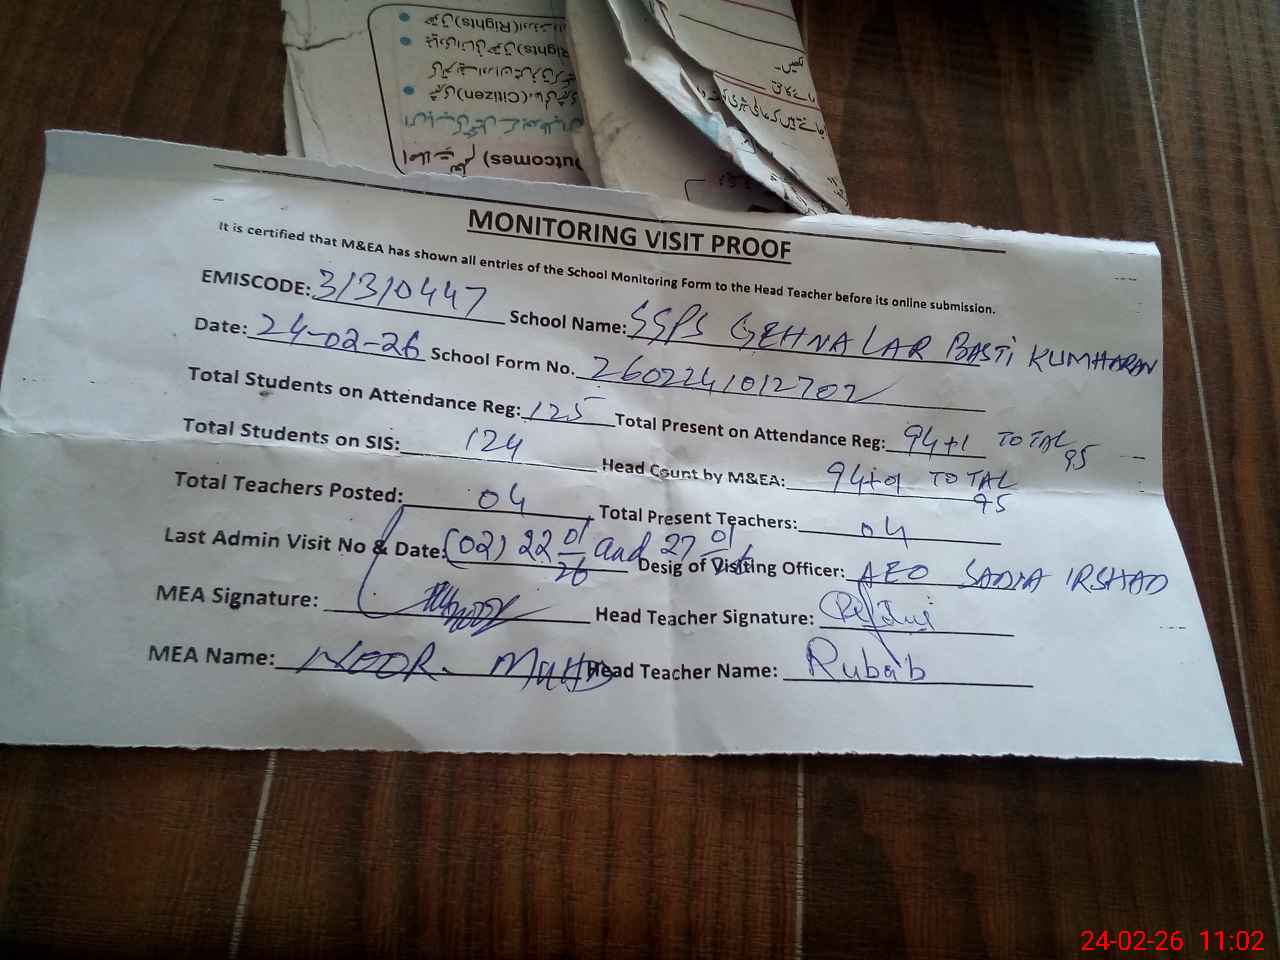 (Rights)
(Rights)
(Citizen)
utcomes)
MONITORING VISIT PROOF
It is certified that M&EA has shown all entries of the School Monitoring Form to the Head Teacher before its online submission.
EMISCODE: 31310447 School Name: SSPS GEHNA LAR BASTI KUMHARAN
Date: 24-02-26 School Form No. 2602241012702
Total Students on Attendance Reg: 125 Total Present on Attendance Reg: 94+1 TOTAL 95
Total Students on SIS: 124 Head Count by M&EA: 94+01 TOTAL 95
Total Teachers Posted: 04 Total Present Teachers: 04
Last Admin Visit No & Date: (02) 22 01/26 and 27 01/26 Desig of Visiting Officer: AEO SADIA IRSHAD
MEA Signature: Head Teacher Signature:
MEA Name: NOOR Head Teacher Name: Rubab
24-02-26 11:02